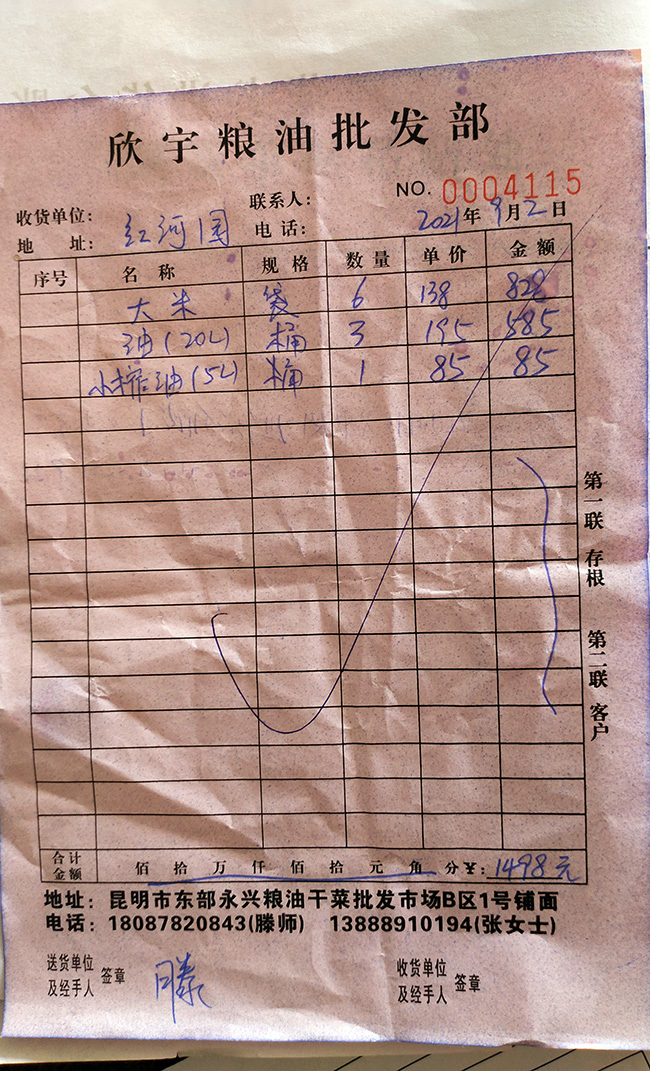 欣宇粮油批发部
NO. 0004115
收货单位: 联系人:
地 址: 红河国 电 话: 2021年9月2日
序号 名 称 规 格 数 量 单 价 金 额
大米 袋 6 138 828
油(20L) 桶 3 195 585
小榨油(5L) 桶 1 85 85
第一联 存根 第二联 客户
合计金额 佰 拾 万 仟 佰 拾 元 角 分 ¥: 1498元
地址: 昆明市东部永兴粮油干菜批发市场B区1号铺面
电话: 18087820843(滕师) 13888910194(张女士)
送货单位 收货单位
及经手人 签章 滕 及经手人 签章